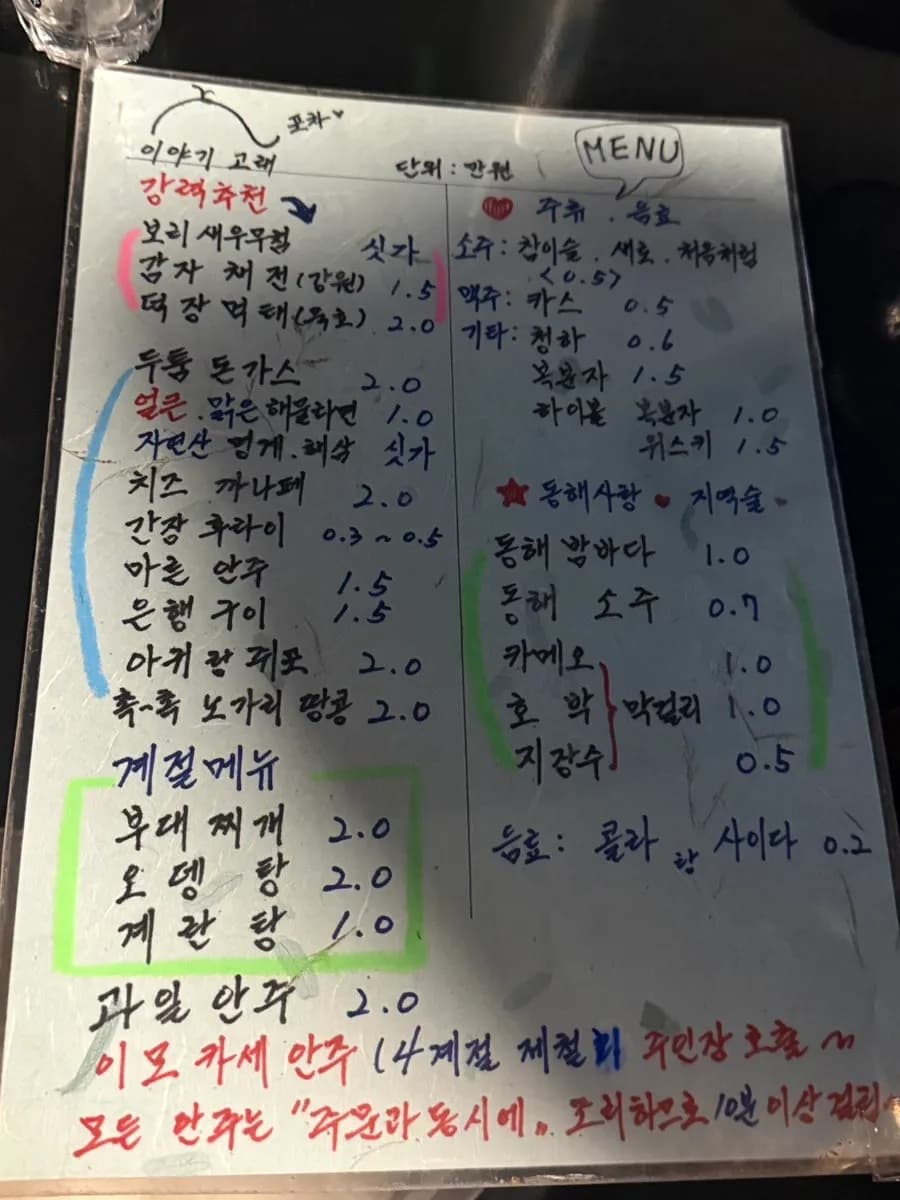 포차
이야기 고래
단위 : 만원
MENU
강력추천
보리새우무침 싯가
감자 채전(강원) 1.5
먹태(묵호) 2.0
두툼 돈가스 2.0
얼큰 . 맑은 해물라면 1.0
자연산 멍게 . 해삼 싯가
치즈 까나페 2.0
간장 후라이 0.3~0.5
마른 안주 1.5
은행 구이 1.5
아귀랑 쥐포 2.0
촉~촉 노가리 땅콩 2.0
계절메뉴
부대 찌개 2.0
오뎅탕 2.0
계란탕 1.0
과일 안주 2.0
주류 . 음료
소주 : 참이슬 . 새로 . 처음처럼
<0.5>
맥주 : 카스 0.5
기타 : 청하 0.6
복분자 1.5
하이볼 복분자 1.0
위스키 1.5
동해사랑 지역술
동해 밤바다 1.0
동해 소주 0.7
카메오 1.0
호박 막걸리 1.0
지장수 0.5
음료 : 콜라 랑 사이다 0.2
이모카세 안주 (4계절 제철 주인장 호출 ~
모든 안주는 "주문과 동시에" 조리하므로 10분 이상 걸려